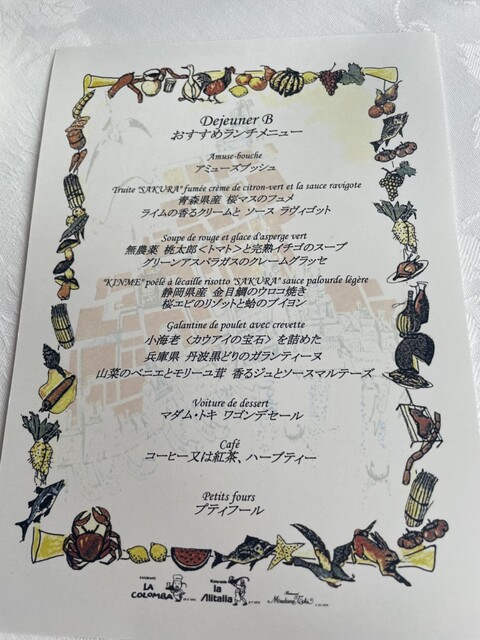 Dejeuner B
おすすめランチメニュー
Amuse-bouche
アミューズブッシュ
Truite "SAKURA" fumée crème de citron-vert et la sauce ravigote
青森県産 桜マスのフュメ
ライムの香るクリームと ソース ラヴィゴット
Soupe de rouge et glace d'asperge vert
無農薬 桃太郎<トマト>と完熟イチゴのスープ
グリーンアスパラガスのクレームグラッセ
"KINME" poêlè à lécaille risotto "SAKURA" sauce palourde lègère
静岡県産 金目鯛のウロコ焼き
桜エビのリゾットと蛤のブイヨン
Galantine de poulet avec crevette
小海老 <カウアイの宝石> を詰めた
兵庫県 丹波黒どりのガランティーヌ
山菜のベニエとモリーユ茸 香るジュとソースマルテーズ
Voiture de dessert
マダム・トキ ワゴンデセール
Café
コーヒー又は紅茶、ハーブティー
Petits fours
プティフール
LA COLOMBA
la Alitalia